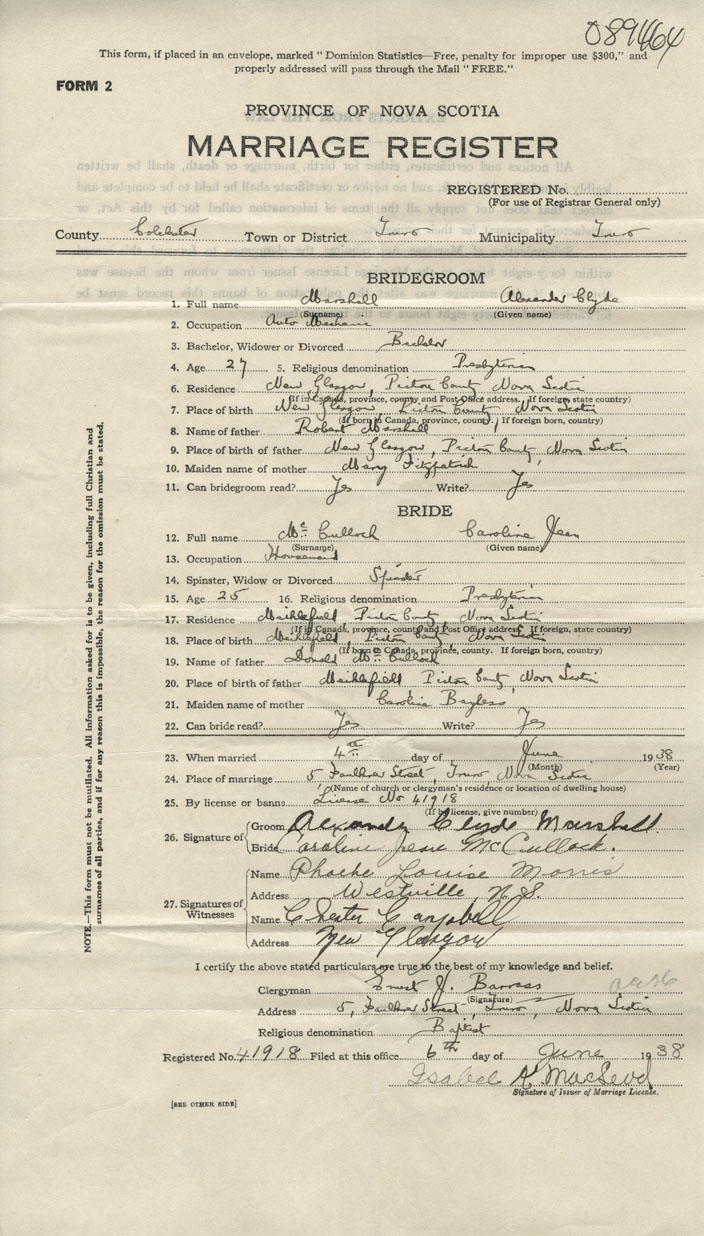 089464
This form, if placed in an envelope, marked "Dominion Statistics—Free, penalty for improper use $300," and
properly addressed will pass through the Mail "FREE."
FORM 2
PROVINCE OF NOVA SCOTIA
MARRIAGE REGISTER
REGISTERED No.
(For use of Registrar General only)
County Colchester Town or District Truro Municipality Truro
BRIDEGROOM
1. Full name Marshall Alexander Clyde
(Surname) (Given name)
2. Occupation Auto Mechanic
3. Bachelor, Widower or Divorced Bachelor
4. Age 27 5. Religious denomination Presbyterian
6. Residence New Glasgow, Pictou County Nova Scotia
(If in Canada, province, county and Post Office address. If foreign, state country)
7. Place of birth New Glasgow, Pictou County Nova Scotia
(If born in Canada, province, county. If foreign born, country)
8. Name of father Robert Marshall
9. Place of birth of father New Glasgow, Pictou County, Nova Scotia
10. Maiden name of mother Mary Fitzpatrick
11. Can bridegroom read? Yes Write? Yes
BRIDE
12. Full name McCulloch Caroline Jean
(Surname) (Given name)
13. Occupation Housemaid
14. Spinster, Widow or Divorced Spinster
15. Age 25 16. Religious denomination Presbyterian
17. Residence Pictou County Nova Scotia
(If in Canada, province, county and Post Office address. If foreign, state country)
18. Place of birth Pictou County Nova Scotia
(If born in Canada, province, county. If foreign born, country)
19. Name of father Donald McCulloch
20. Place of birth of father Pictou County, Nova Scotia
21. Maiden name of mother Caroline Bayless
22. Can bride read? Yes Write? Yes
23. When married 4th day of June 1938
(Month) (Year)
24. Place of marriage 5 Faulkner Street, Truro Nova Scotia
(Name of church or clergyman's residence or location of dwelling house)
25. By license or banns License No 41918
(If by license, give number)
26. Signature of Groom Alexander Clyde Marshall
Bride Caroline Jean McCulloch.
27. Signatures of Witnesses Name Phoebe Louise Morris
Address Westville N.S.
Name Chester Campbell
Address New Glasgow
I certify the above stated particulars are true to the best of my knowledge and belief.
Clergyman Ernest J. Barrass
(Signature)
Address 5, Faulkner Street, Truro, Nova Scotia
Religious denomination Baptist
Registered No. 41918 Filed at this office 6th day of June 1938
Isabel A. MacLeod
Signature of Issuer of Marriage License.
[SEE OTHER SIDE]
NOTE.—This form must not be mutilated. All information asked for is to be given, including full Christian and
surnames of all parties, and if for any reason this is impossible, the reason for the omission must be stated.